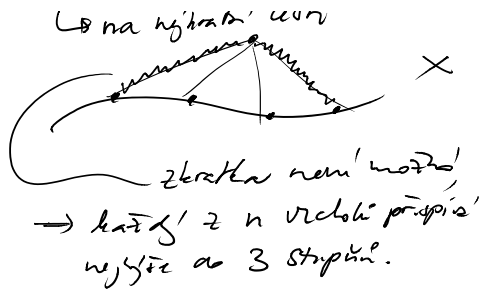 ↳ na nejkratší cestu
zkratka není možná
→ každý z n vrcholů přispívá
nejvýše do 3 stupňů.